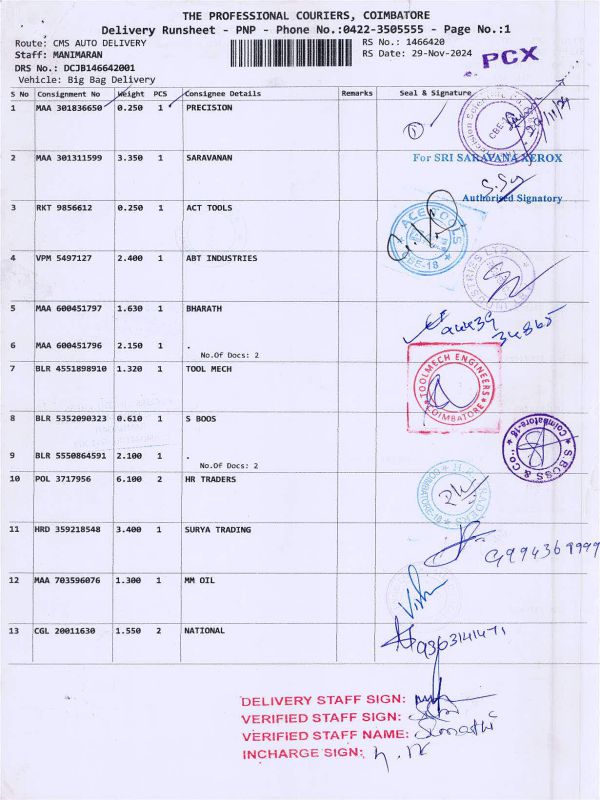 THE PROFESSIONAL COURIERS, COIMBATORE
Delivery Runsheet - PNP - Phone No.:0422-3505555 - Page No.:1
Route: CMS AUTO DELIVERY RS No.: 1466420
Staff: MANIMARAN RS Date: 29-Nov-2024
PCX
DRS No.: DCJB146642001
Vehicle: Big Bag Delivery
S No Consignment No Weight PCS Consignee Details Remarks Seal & Signature
1 MAA 301836650 0.250 1 PRECISION
CBE-
2 MAA 301311599 3.350 1 SARAVANAN
For SRI SARAVANA XEROX
Authorised Signatory
3 RKT 9856612 0.250 1 ACT TOOLS
ACE TOOLS
CBE-18
4 VPM 5497127 2.400 1 ABT INDUSTRIES
5 MAA 600451797 1.630 1 BHARATH
6 MAA 600451796 2.150 1 .
No.Of Docs: 2
7 BLR 4551898910 1.320 1 TOOL MECH
TOOLMECH ENGINEERS
COIMBATORE
8 BLR 5352090323 0.610 1 S BOOS
S.BOSS & CO.,
Coimbatore-18
9 BLR 5550864591 2.100 1 .
No.Of Docs: 2
10 POL 3717956 6.100 2 HR TRADERS
COIMBATORE-18
11 HRD 359218548 3.400 1 SURYA TRADING
12 MAA 703596076 1.300 1 MM OIL
13 CGL 20011630 1.550 2 NATIONAL
DELIVERY STAFF SIGN:
VERIFIED STAFF SIGN:
VERIFIED STAFF NAME:
INCHARGE SIGN: